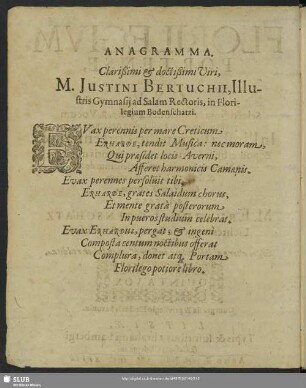 ANAGRAMMA.
Clarißimi & doctißimi Viri,
M. JUSTINI BERTUCHII, Illu-
stris Gymnasij ad Salam Rectoris, in Flori-
legium Bodenschatzi.
EVax perennis per mare Creticum
ERHARDE, tendit Musica: nec moram,
Qui præsidet locis Averni,
Afferet harmonicis Camœnis.
Evax perennes persolvit tibi,
ERHARDE, grates Salaidum chorus,
Et mente gratâ posterorum
In pueros studium celebrat.
EVAX ERHARDUS, pergat, & ingenî
Composta centum noctibus offerat
Complura, donet atq; Portam
Florilego potiore libro.
SLUB
Wir führen Wissen.